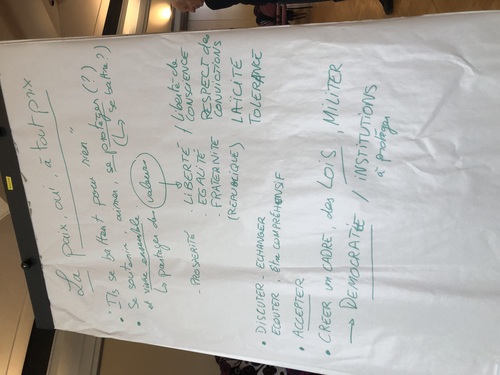 La paix, oui, à tout prix
• Ils se battent pour rien "
armer, se protéger (?)
(↳ se battre?)
• Se soutenir
et vivre ensemble
↳ partage de valeurs
- PROSPÉRITÉ
- LIBERTÉ / Liberté de CONSCIENCE
- EGALITÉ RESPECT des CONVICTIONS
- FRATERNITÉ LAÏCITÉ
(RÉPUBLIQUES) TOLERANCE
• DISCUTER. ECHANGER
ECOUTER. être COMPRÉHENSIF
• ACCEPTER
• CRÉER UN CADRE, des LOIS, MILITER
→ DEMOCRATIE / INSTITUTIONS
à protéger